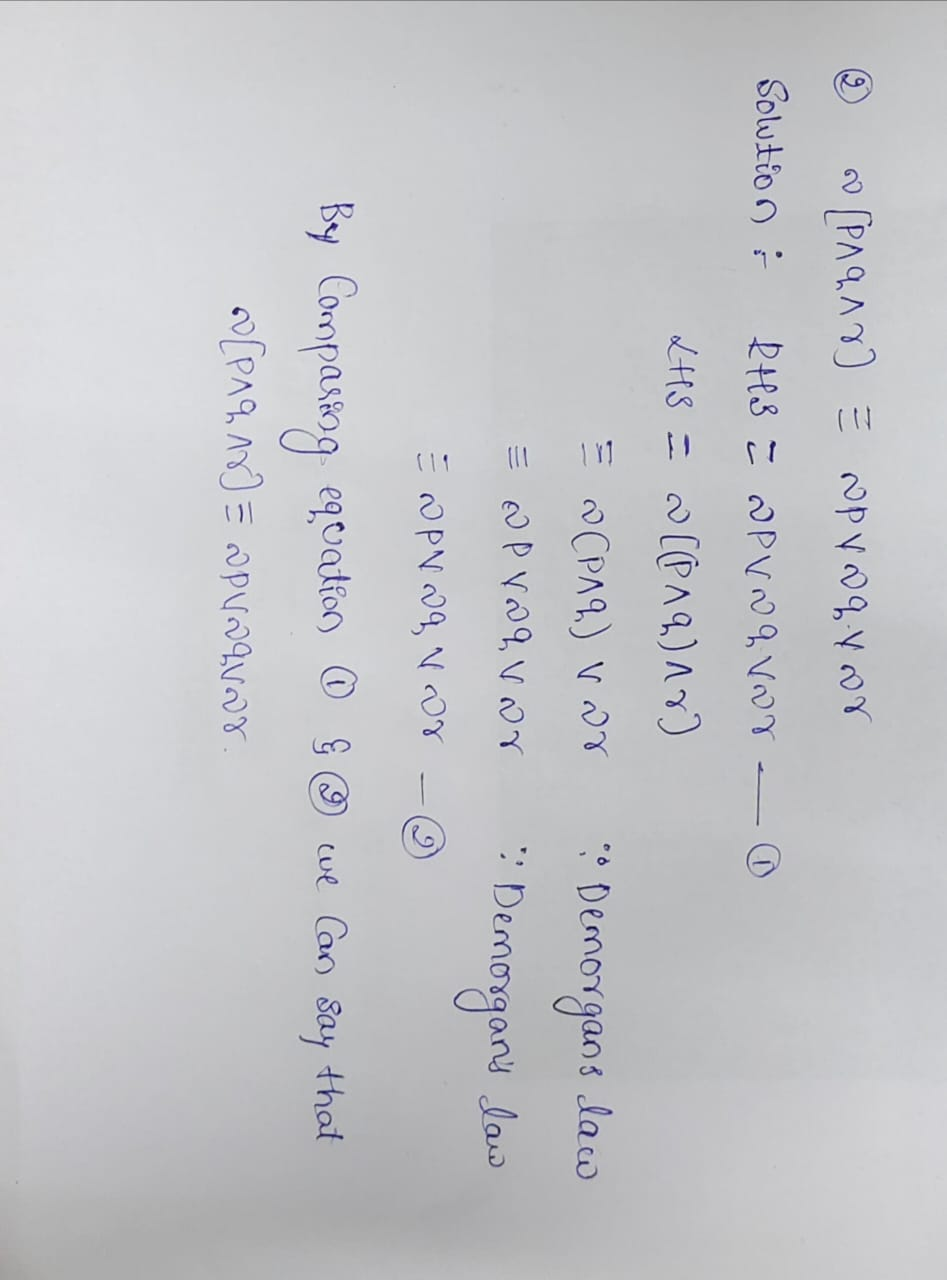 ② ~[p∧q∧r] ≡ ~p∨~q∨~r
Solution :- RHS ≡ ~p∨~q∨~r —— ①
LHS ≡ ~[(p∧q)∧r]
≡ ~(p∧q)∨~r ∵ Demorgans law
≡ ~p∨~q∨~r ∵ Demorgan's law
≡ ~p∨~q∨~r — ②
By Comparing equation ① & ② we Can say that
~[p∧q∧r] ≡ ~p∨~q∨~r.